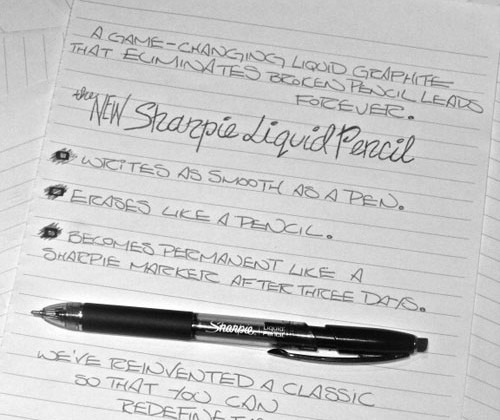 A GAME-CHANGING LIQUID GRAPHITE
THAT ELIMINATES BROKEN PENCIL LEADS
FOREVER.
the NEW Sharpie Liquid Pencil
WRITES AS SMOOTH AS A PEN.
ERASES LIKE A PENCIL.
BECOMES PERMANENT LIKE A
SHARPIE MARKER AFTER THREE DAYS.
Sharpie. Liquid Pencil
WE'VE REINVENTED A CLASSIC
SO THAT YOU CAN
REDEFINE